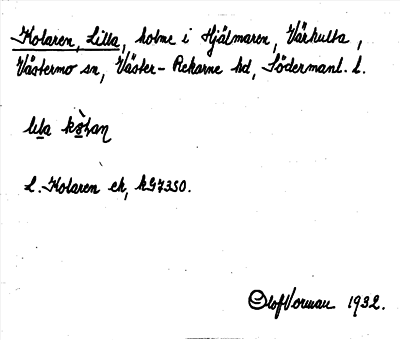 Kolaren, Lilla, holme i Hjälmaren, Värhulta,
Västermo sn, Väster-Rekarne hd, Södermanl. l.
lıla
L. Kolaren ek, kG7350.
Olof Vorman 1932.